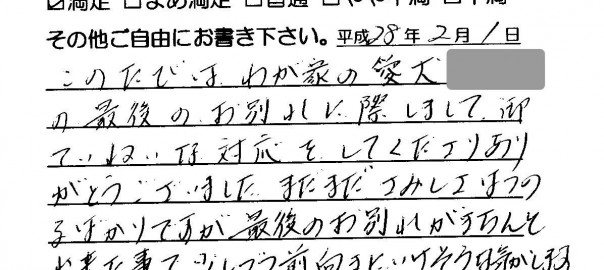 ☑満足 □まあ満足 □普通 □やや不満 □不満
その他ご自由にお書き下さい。平成28年2月1日
このたびは わが家の愛犬
の最後のお別れに際しまして 御
ていねいな対応をしてくださりあり
がとうございました まだまださみしさはつの
るばかりですが 最後のお別れがきちんと
出来た事で 少しづつ前向きにいけそうな気がしま